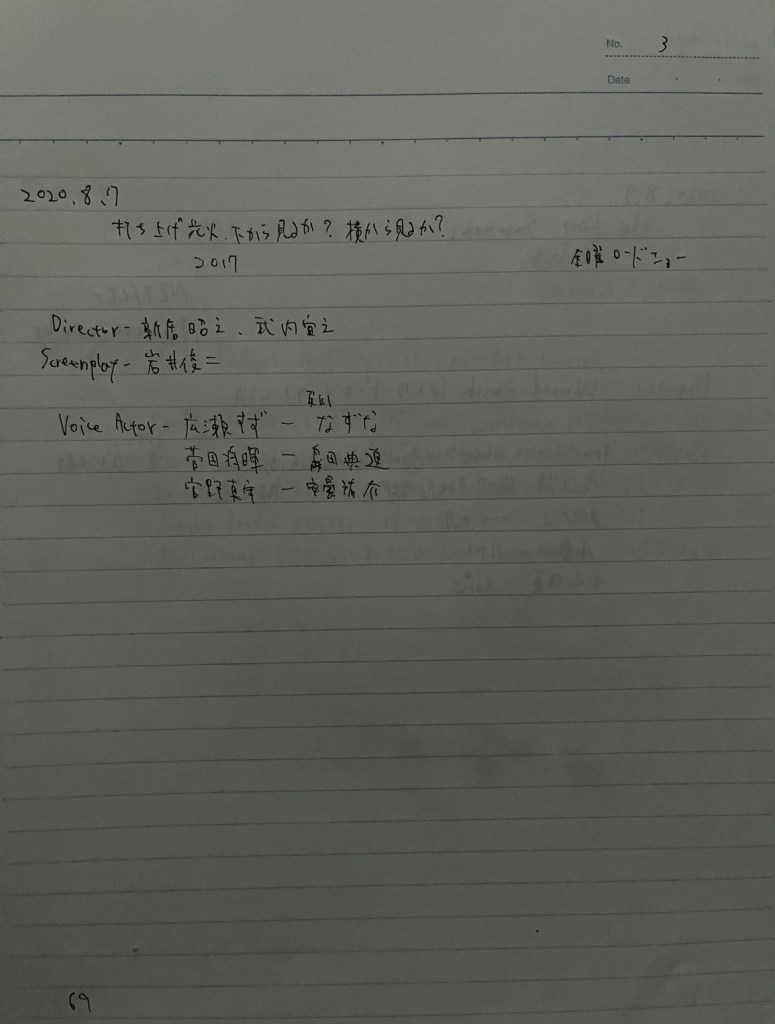 No. 3
Date
2020.8.7
打ち上げ花火、下から見るか?横から見るか?
2017
金曜ロードショー
Director - 新房昭之、武内宣之
Screenplay - 岩井俊二
Voice Actor - 広瀬すず - なずな
菅田将暉 - 島田典道
宮野真守 - 安曇祐介
69